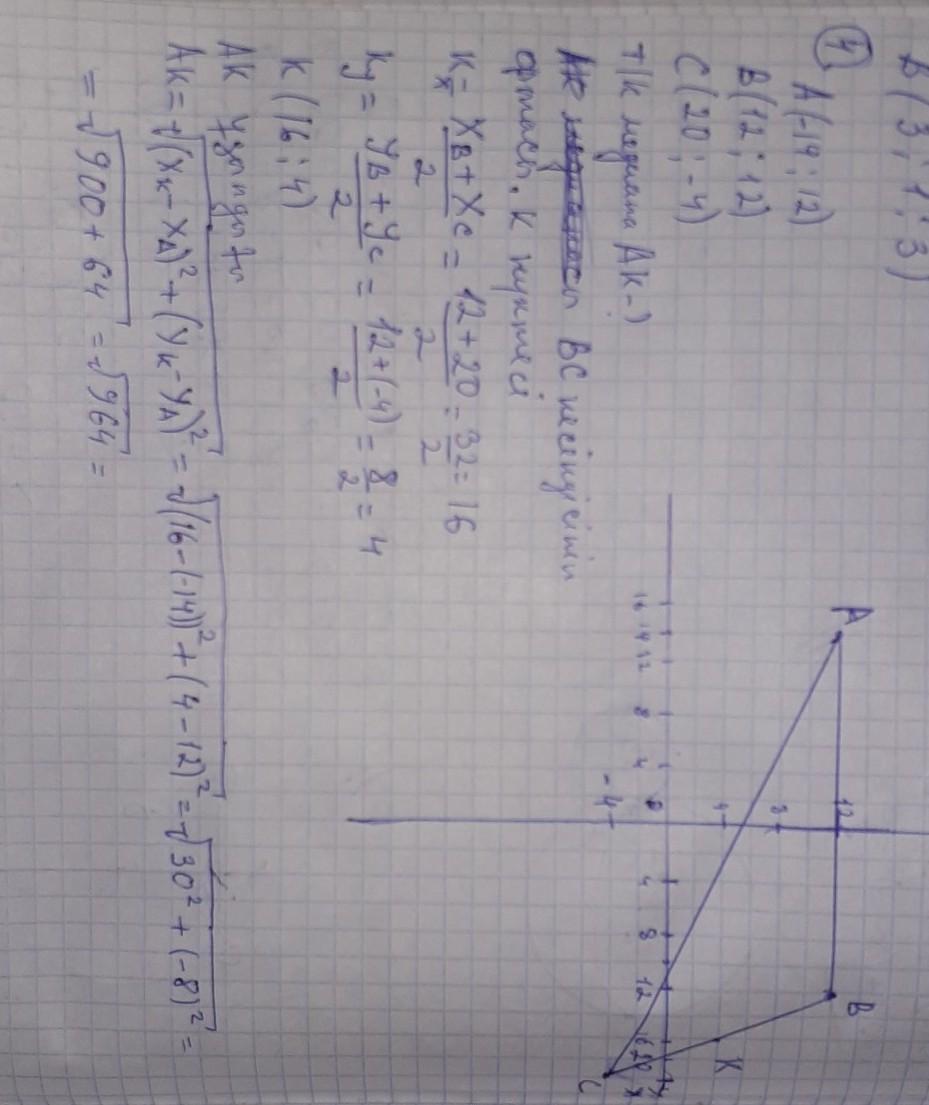 B(3; 1; 3)
4. A(-14; 12)
B(12; 12)
C(20; -4)
т/к медиана AK-?
BC кесіндісінің
ортасы. K нүктесі
Kx = XB + XC / 2 = 12 + 20 / 2 = 32 / 2 = 16
Ky = YB + YC / 2 = 12 + (-4) / 2 = 8 / 2 = 4
K (16; 4)
AK ұзындығы
AK = √(XK - XA)² + (YK - YA)² = √(16 - (-14))² + (4 - 12)² = √30² + (-8)² =
= √900 + 64 = √964 =
A
B
C
K
16 14 12 8 4 0 4 8 12 16 20 x
12
8
4
-4